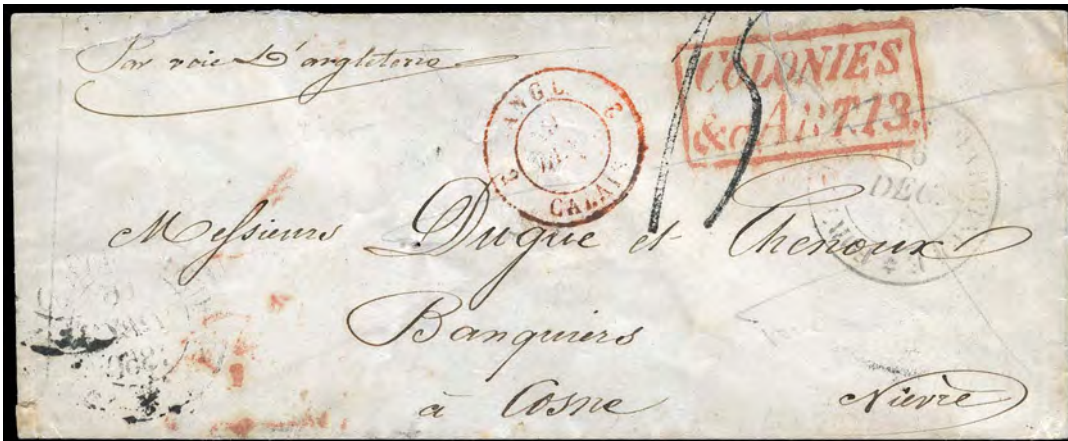 Par voie D'angleterre
COLONIES
&c ART.13.
2 ANGL. 2
CALAIS
15
DEC.
Messieurs Dugue et Chenoux
Banquiers
à Cosne Nièvre